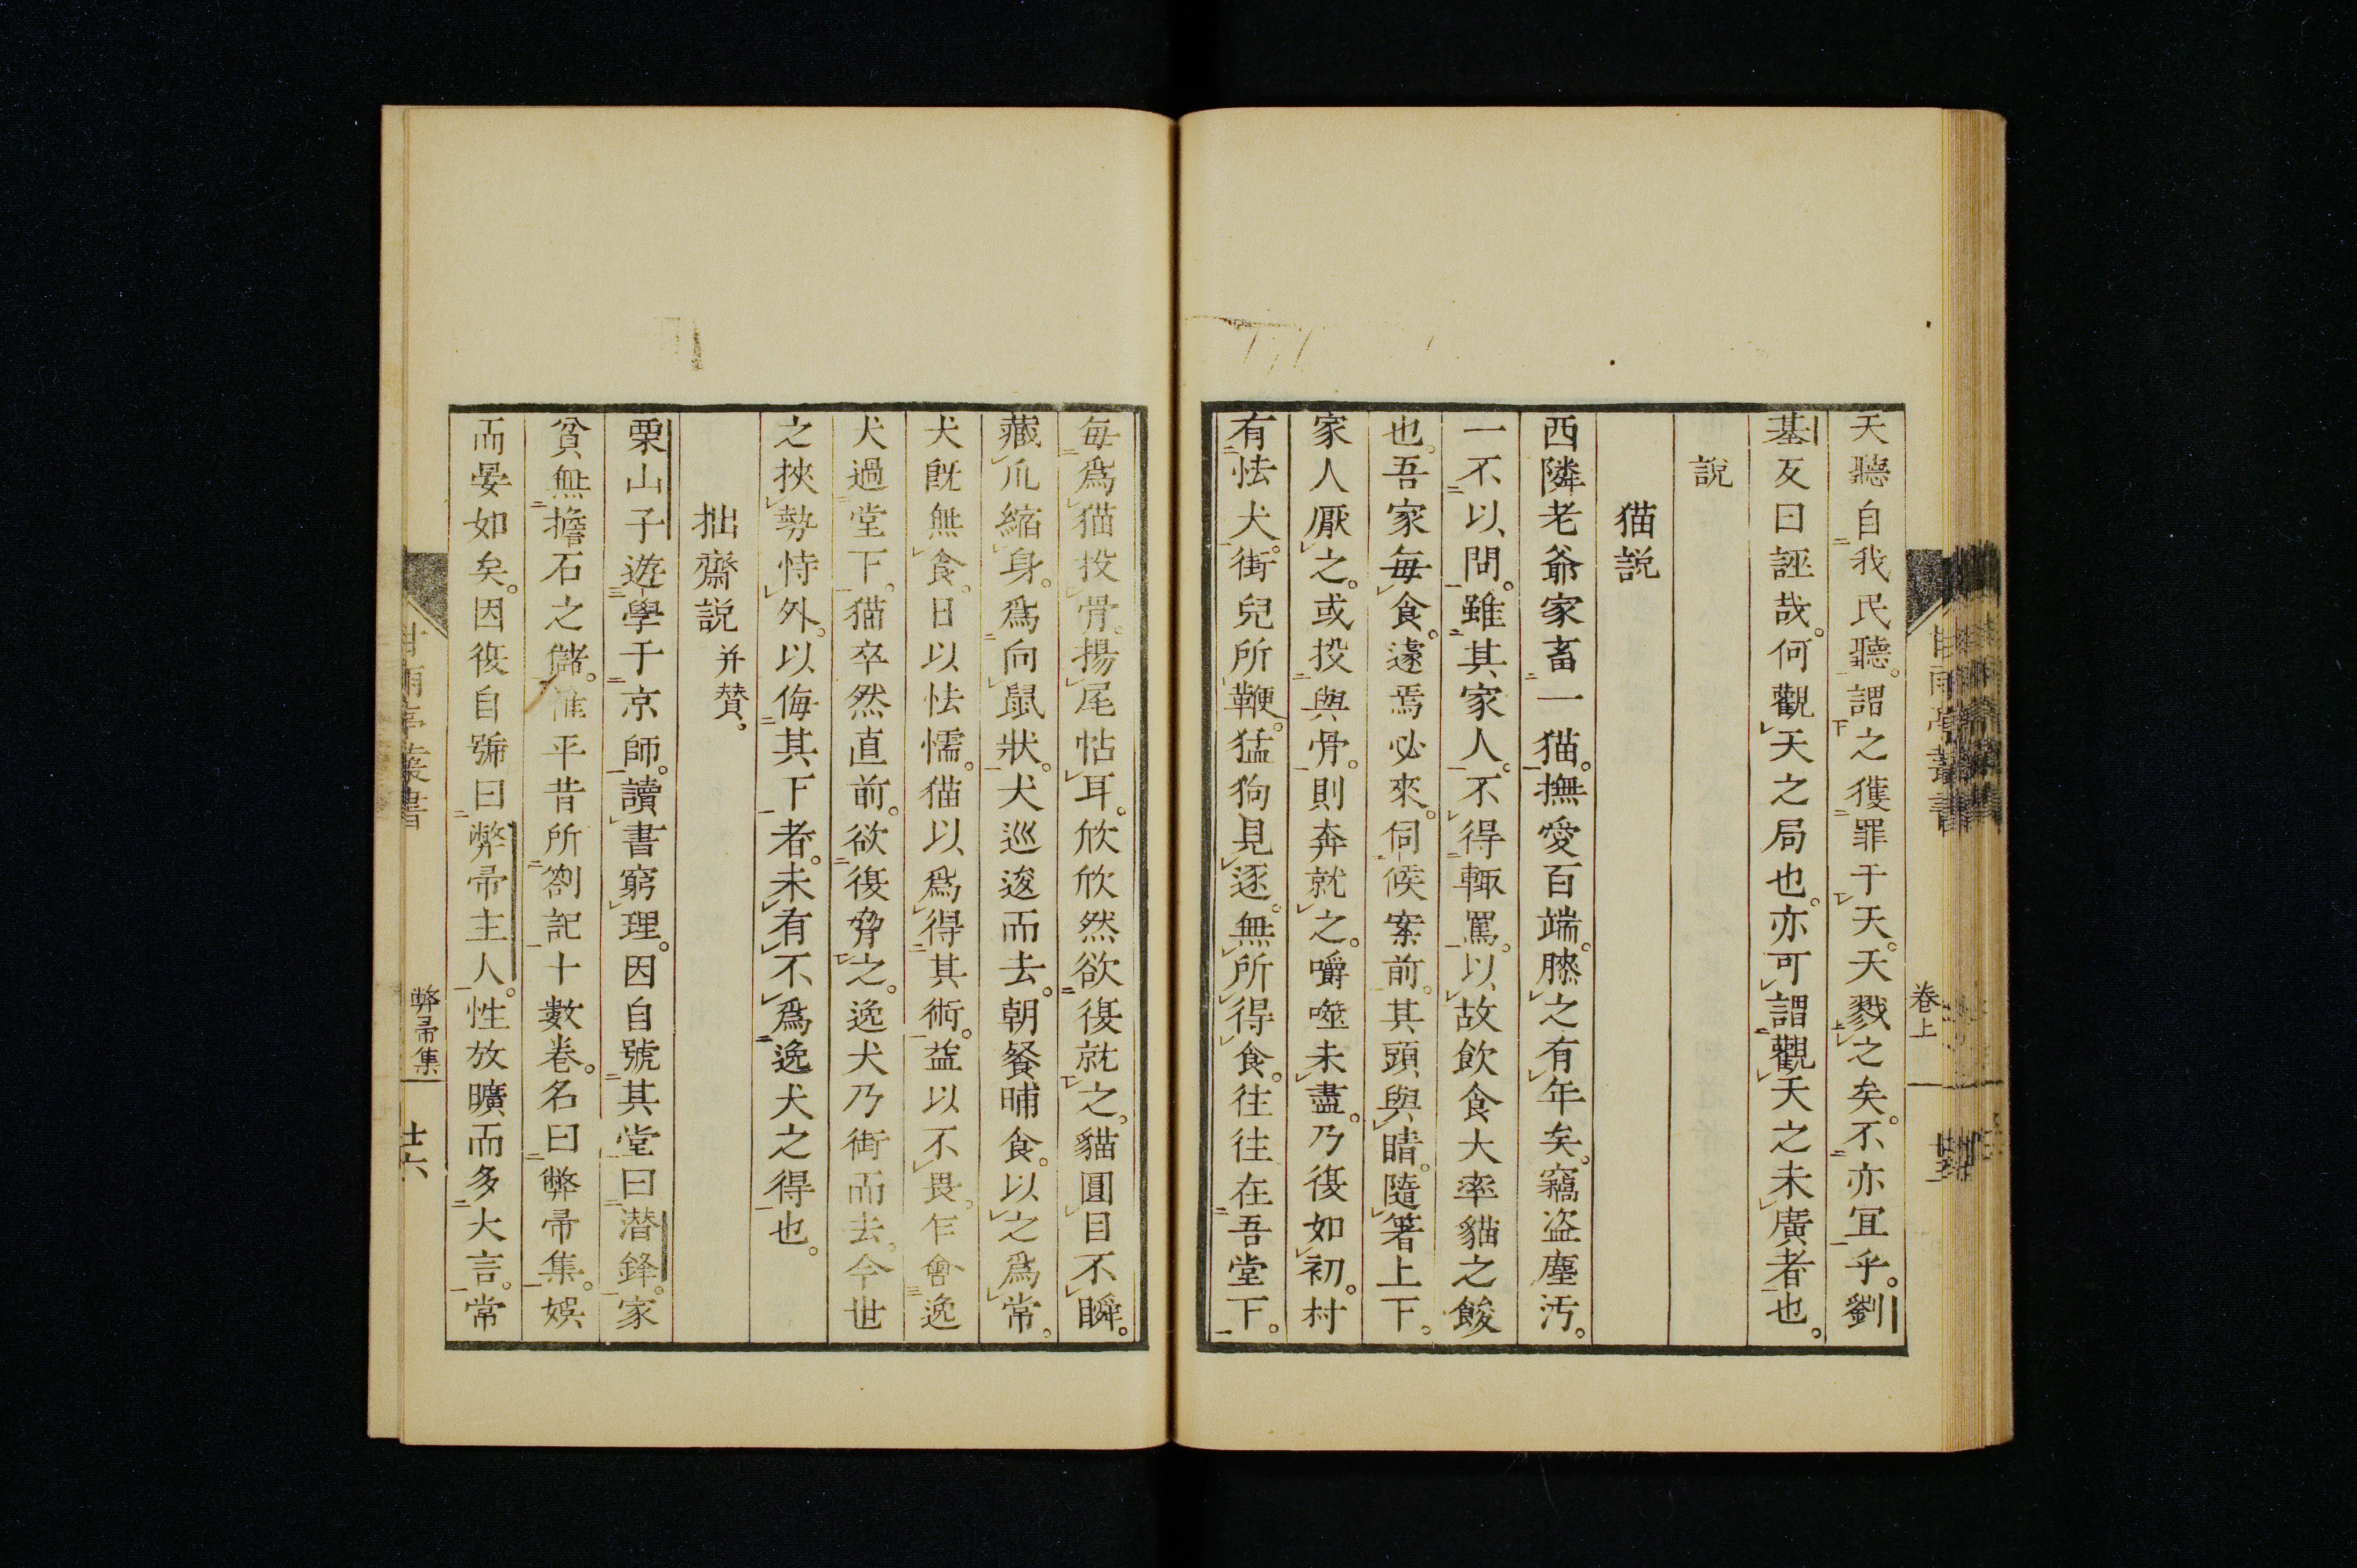 天聽自我民聽。謂之獲罪于天。天戮之矣。不亦宜乎。劉
基反曰誣哉。何觀天之局也。亦可謂觀天之未廣者也。
説
猫説
西隣老爺家畜一猫。撫愛百端。膝之有年矣。竊盗塵汚。
一不以問。雖其家人。不得輙罵。以故飲食大率貓之餕
也。吾家毎食。遽焉必來。伺候案前。其頭與睛。隨箸上下。
家人厭之。或投與骨。則奔就之。嚼噬未盡。乃復如初。村
有怯犬。街兒所鞭。猛狗見逐。無所得食。往往在吾堂下。
卷上
毎爲猫投骨。揚尾帖耳。欣欣然欲復就之。貓圓目不瞬。
藏爪縮身。爲向鼠狀。犬巡逡而去。朝餐晡食。以之爲常。
犬既無食。日以怯懦。猫以爲得其術。益以不畏。乍會逸
犬過堂下。猫卒然直前。欲復脅之。逸犬乃銜而去。今世
之挾勢恃外。以侮其下者。未有不爲逸犬之得也。
拙齋説并賛。
栗山子遊學于京師。讀書窮理。因自號其堂曰潜鋒。家
貧無擔石之儲。惟平昔所劄記十數卷。名曰弊帚集。娯
而晏如矣。因復自號曰弊帚主人。性放曠而多大言。常
甘雨亭叢書
弊帚集
廿六